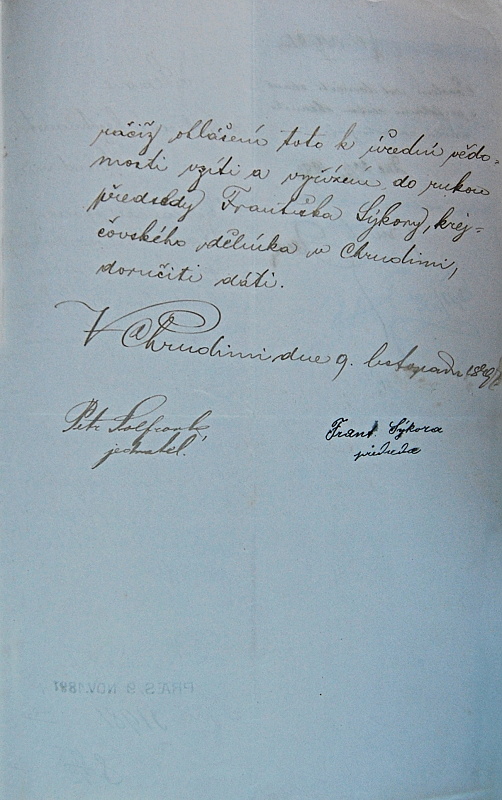 ráčiž ohlášení toto k úřední vědo-
mosti vzíti a vyřízení do rukou
předsedy Františka Sýkory, krej-
čovského dělníka v Chrudimi,
doručiti dáti.
V Chrudimi dne 9. listopadu 1891
Petr Wolfrank,
jednatel.
Frant. Sýkora
předseda
PRÆS. 9. NOV. 1891